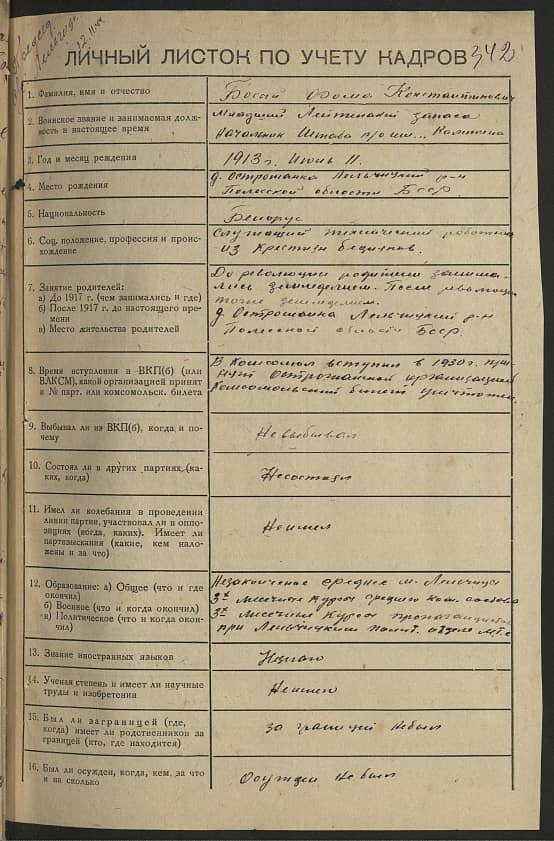 12.11.44
ЛИЧНЫЙ ЛИСТОК ПО УЧЕТУ КАДРОВ 342
1. Фамилия, имя и отчество
Босый Фома Константинович
2. Воинское звание и занимаемая должность в настоящее время
Младший Лейтенант запаса
Начальник Штаба п/о им... Калинина
3. Год и месяц рождения
1913 г. Июнь 11.
4. Место рождения
д. Острожанка Лельчицкий р-н
Полесской области БССР
5. Национальность
Белорус
6. Соц. положение, профессия и происхождение
Служащий технический работник
из крестьян бедняков.
7. Занятие родителей:
а) До 1917 г. (чем занимались и где)
б) После 1917 г. до настоящего времени
в) Место жительства родителей
До революции родители занима-
лись земледелием. После революции
тоже земледелием.
д. Острожанка Лельчицкий р-н
Полесской области БССР.
8. Время вступления в ВКП(б) (или
ВЛКСМ), какой организацией принят
и № парт. или комсомольск. билета
В Комсомол вступил в 1930 г. при-
нят Острожанкой организацией
Комсомольский билет уничтожен.
9. Выбывал ли из ВКП(б), когда и по-
чему
Не выбывал
10. Состоял ли в других партиях (ка-
ких, когда)
Несостоял
11. Имел ли колебания в проведении
линии партии, участвовал ли в оппо-
зициях (когда, каких). Имеет ли
партвзыскания (какие, кем нало-
жены и за что)
Неимел
12. Образование: а) Общее (что и где
окончил)
б) Военное (что и когда окончил)
в) Политическое (что и когда окон-
чил)
Незаконченое среднее м. Лельчицы
3х месячные курсы среднего ком. состава
3х месячные курсы пропагандистов
при Лельчицким полит. отделе МТС
13. Знание иностранных языков
Незнаю
14. Ученая степень и имеет ли научные
труды и изобретения
Неимею
15. Был ли заграницей (где,
когда) имеет ли родственников за
границей (кто, где находится)
За границей небыл
16. Был ли осужден, когда, кем, за что
и на сколько
Осужден не был